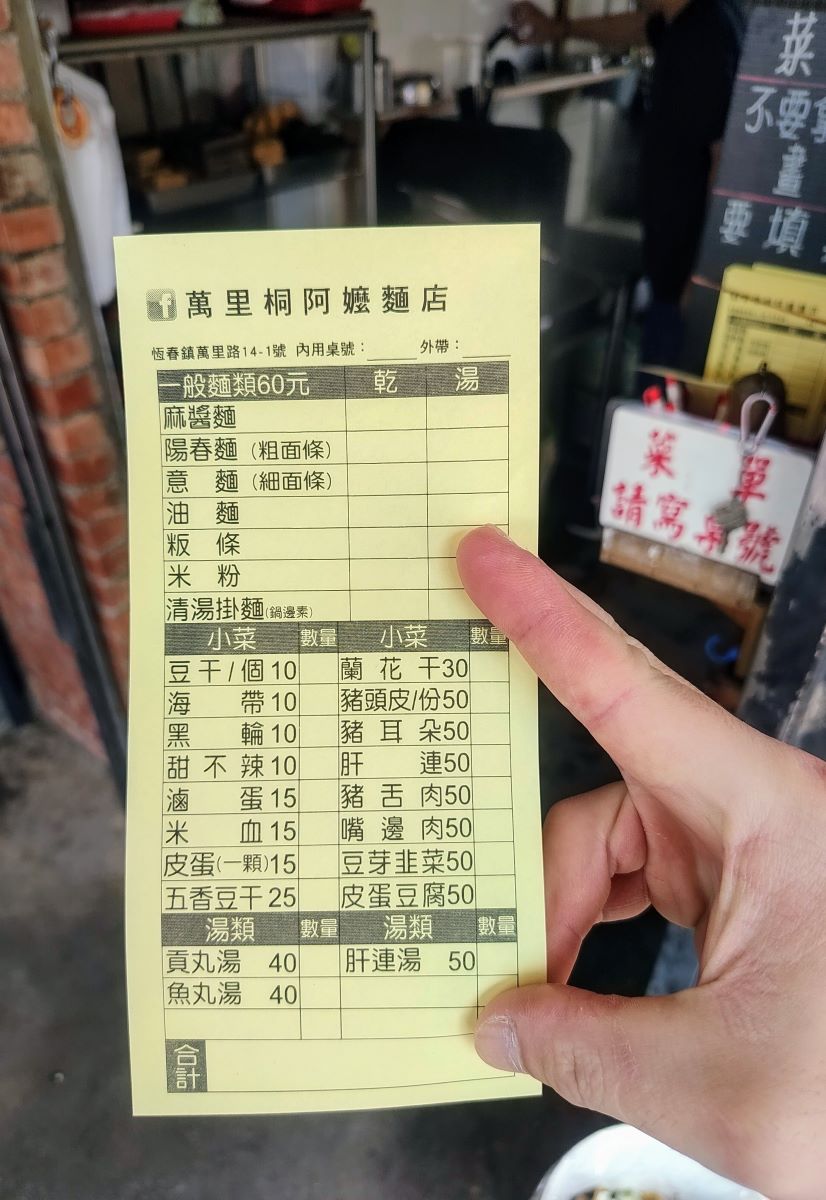 菜
不要拿
畫
要填
f 萬里桐阿嬤麵店
恆春鎮萬里路14-1號 內用桌號：____ 外帶：____
一般麵類60元 乾 湯
麻醬麵
陽春麵（粗面條）
意 麵（細面條）
油 麵
粄 條
米 粉
清湯掛麵(鍋邊素)
小菜 數量 小菜 數量
豆干/個 10 蘭花干30
海帶10 豬頭皮/份50
黑輪10 豬耳朵50
甜不辣10 肝連50
滷蛋15 豬舌肉50
米血15 嘴邊肉50
皮蛋(一顆)15 豆芽韭菜50
五香豆干25 皮蛋豆腐50
湯類 數量 湯類 數量
貢丸湯 40 肝連湯 50
魚丸湯 40
合計
菜單
請寫桌號